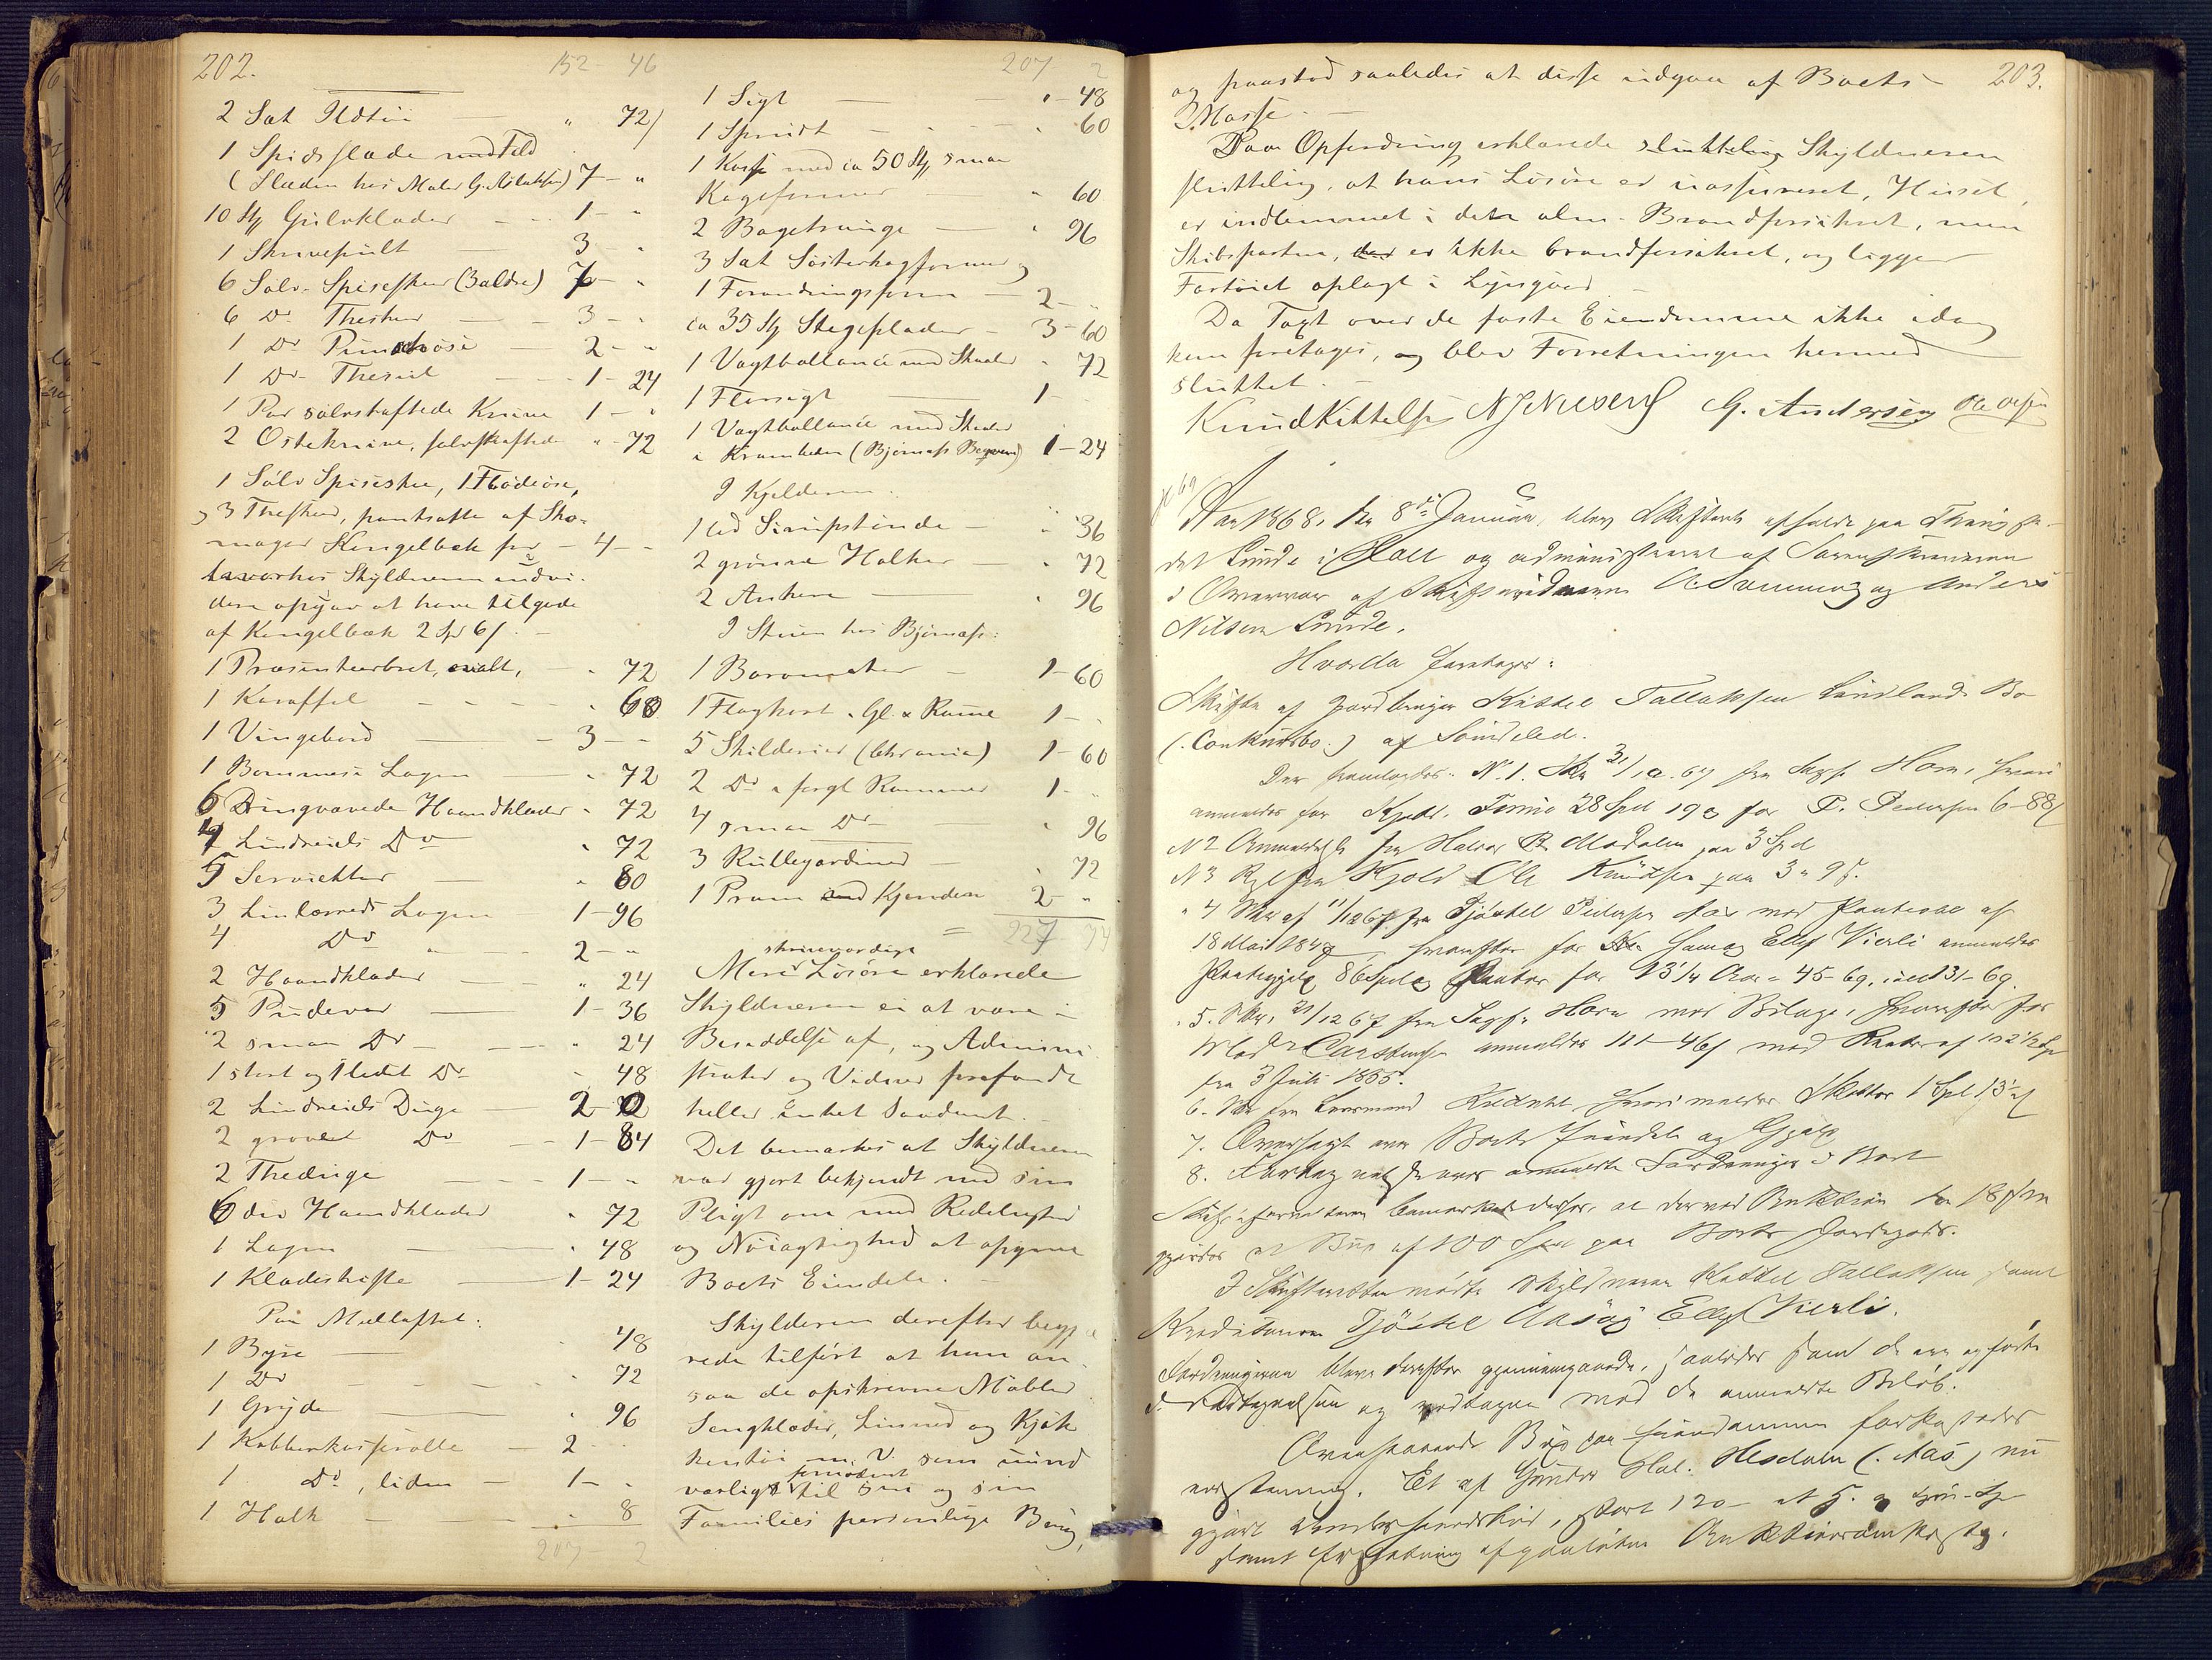 202.
152 - 46
2 Sæt Ildtøi " 72/
1 Spidsslæde med Feld
(Slæden hos Maler G. Aslaksen) 7 - "
10 Stk Gulvklæder 1 - "
1 Skrivepult 3 - "
6 Sølv-Spiseskeer (3 ældre) 7 - "
6 Do Theskeer 3 - "
1 Do Punschøse 2 - "
1 Do Thesiel 1 - 24
1 Par sølvskaftede Knive 1 - "
2 Osteknive, sølvskaftede " - 72
1 Sølv Spiseskee, 1 Flødeøse,
og 3 Theskeer, pantsatte af Sko-
mager Kengelbæk for - 4 - "
hvorhos Skyldneren endvi-
dere opgav at have tilgode
af Kengelbæk 2 Spd 6/. -
1 Præsenteerbret, ovalt, " 72
1 Karaffel " 60
1 Vingebord 3 - "
1 Bommesi Lagen " 72
6 Dungvævede Haandklæder " 72
4 Lindreiels Do " 72
5 Servietter " 80
3 Linlærreds Lagen 1 - 96
4 Do " 2 - "
2 Haandklæder " 24
5 Pudevar 1 - 36
2 smaa Do " 24
1 stort og 1 lidet Do " 48
2 Lindreiels Duge 2 0
2 grovere Do 1 - 84
2 Theduge 1 - "
6 div Haandklæder " 72
1 Lagen " 48
1 Klædeskiste 1 - 24
Paa Mælloftet:
1 Byse 48
1 Do 72
1 Gryde " 96
1 Kobberkasserolle 2 "
1 Do, liden 1 - "
1 Halk " 8
207 2
207 2
1 Sigt " - 48
1 Sprudt " 60
1 Kasse med ca 50 Stk smaa
Kageformer " 60
2 Bagetrouge " 96
3 Sæt Søsterkageformer og
1 Forandringsform 2 - "
ca 35 Stk Stegeplader 3 - 60
1 Vægtballance med Skaaler " 72
1 Florsigt 1 -
1 Vægtballance med Skaaler
i Kramboden (Bjørnæs Bagværk) 1 - 24
I Kjelderen:
1 led Siruipstønde " 36
2 grønne Halker " 72
2 Ankere " 96
I Stuen hos Bjørnæs:
1 Barometer 1 - 60
1 Flagkort i Gl. & Ramme 1 - "
5 Skilderier (Chrania) 1 - 60
2 Do i forgl Rammer 1 - "
4 smaa Do " 96
3 Rullegardiner " 72
1 Pram med Kjendere 2 - "
= 227 94
skriveværdige
Mere Løsøre erklærede
Skyldneren ei at være i
Besiddelse af, og Admini-
strator og Vidner forefandt
heller Intet Saadant.
Det bemærkes at Skyldneren
var gjort bekjendt med sin
Pligt om med Redelighed
og Nøiagtighed at opgive
Boets Eiendele. -
Skyldneren derefter begjæ-
rede tilført at han an-
saa de opskrevne Møbler
Sengklæder, Linned og Kjøk-
kentøi m. V. som uund-
værligt fornødent til sin og sin
Families personlige Brug,
203.
og paastod saaledes at disse udgaa af Boets
Masse. -
Paa Opfordring erklærede sluttelig Skyldneren
sluttelig, at hans Løsøre er uassureret, Huset
er indlemmet i det alm. Brandforsikret, men
Skibsparten, der er ikke brandforsikret, og ligger
Fartøiet oplagt i Lyngør
Da Taxt over de faste Eiendomme ikke idag
kan foretages, og blev Forretningen hermed
sluttet. -
Knud Kittelsen N J Nielsen G. Andersen Ole Olsen
Aar 1868, den 8de Januar, blev Skifteret afholdt paa Thingste-
det Lunde i Holt og administreret af Sorenskriveren
i Overvær af Skiftevidnerne A. Sammeng og Anders
Nilsen Lunde.
Hvorda foretoges:
Skifte af Gardbruger Kittel Tallaksen Lindlands Bo
(Conkursbo.) af Søndeled.
Der fremlagdes: N. 1. Skr 31/10. 67 fra Sagf. Horn, hvori
anmeldes for Kjøbm. Finne 28 Spd 19 s for P. Pedersen 6 - 88/
N 2 Anmeldelse fra Halvor Modalen paa 3 Spd
N 3 Rgl fra Kjold Ole Knudsen paa 3 " 9 s.
" 4 Skr af 11/12 67 fra Tjøstel Pedersen Aas med Panteobl af
18 Mai 184 , hvorefter for ham og Ellef Vierli anmeldes
Pantegjeld 86 Spd og Renter for 13 1/4 Aar = 45 - 69, ialt 131 - 69.
" 5. Skr. 21/12 67 fra Sagf. Horn med Bilage, hvorefter for
Mad. Carstensen anmeldes 111 - 46/ med Renter af 102 1/2 Spd
fra 3 Juli 1865.
6. Skr fra Lensmand hvori meldes Skatter 1 Spd 13 s
7. Oversigt over Boets Eiendele og Gjæld
8. Fortegnelse over anmeldte Fordringer i Boet
Skifteforvalteren bemærkede derhos, at der ved Auktion den 18
gjordes et Bud af 100 Spd paa Boets Jordegods.
I Skifteretten mødte Skyldneren Kittel Tallaksen samt
Kreditorerne Tjøstel Aas og Ellef Vierli.
Fordringerne bleve derefter gjennemgaaede, saaledes som de ere opførte
i Fortegnelsen og vedtagne med de anmeldte Beløb.
Ovenstaaende Bud paa Eiendommen forkastedes
enstemmig. Et af Gunder Hal. Hesdalen (Aas) nu
gjort underhaandsbud, stort 120 -
samt Erstatning af paaløbne Auktionsomkostng.